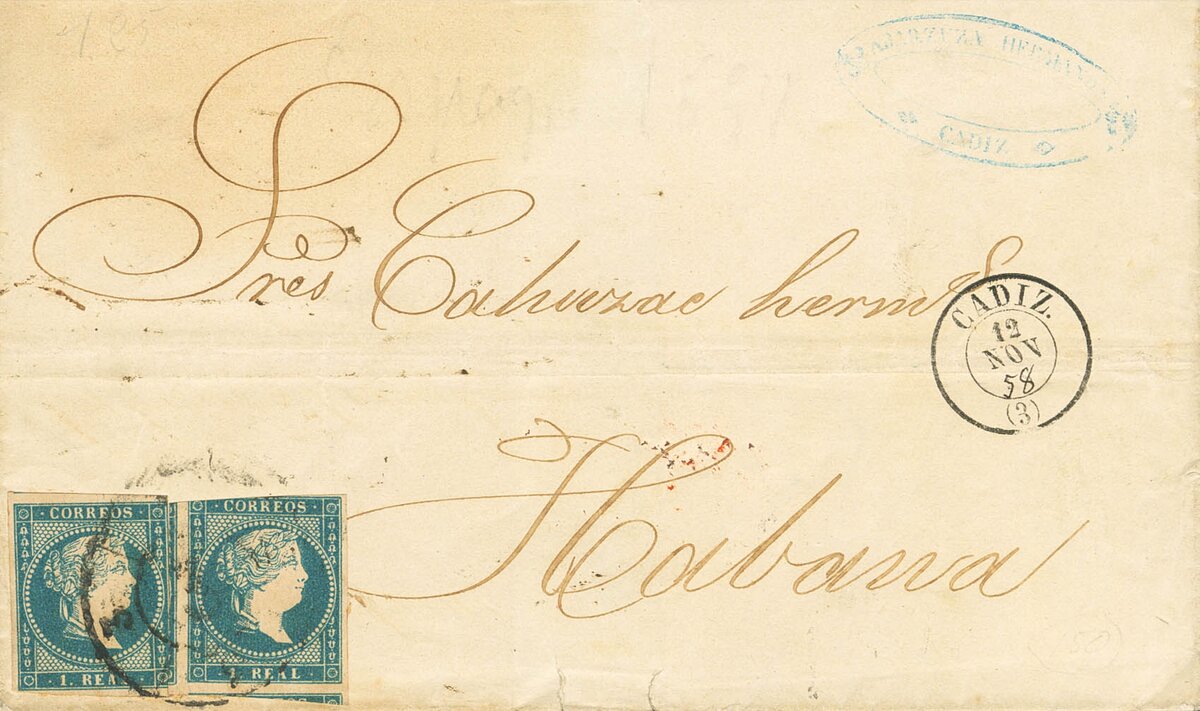 CADIZ
Sres Cahuzac herms
CADIZ.
12
NOV
58
(3)
Habana
CORREOS
1. REAL
CORREOS
1 REAL